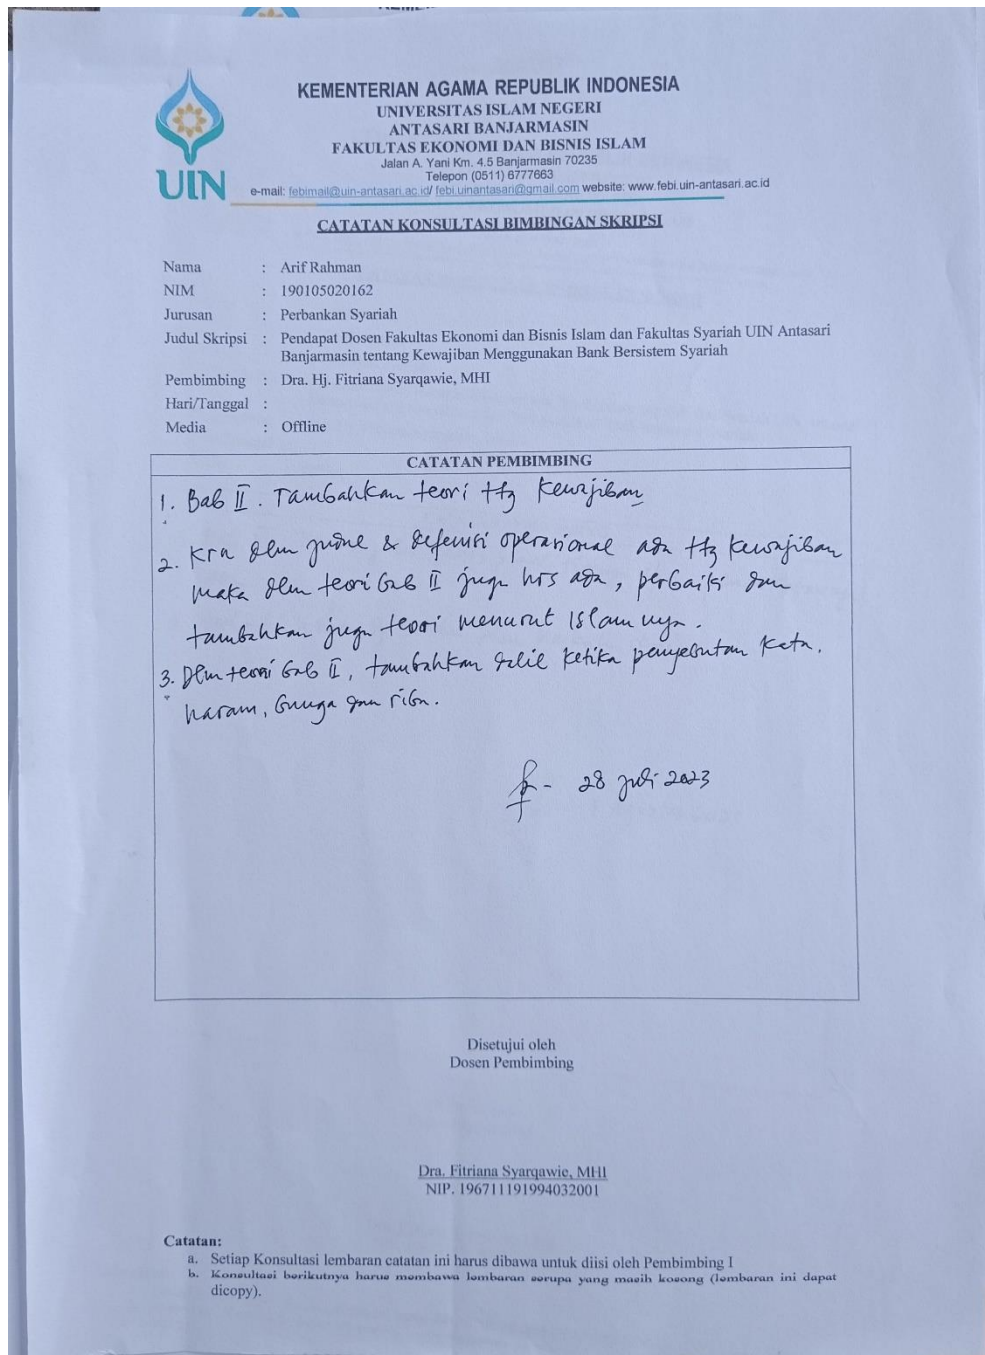 KEMENTERIAN AGAMA REPUBLIK INDONESIA
UNIVERSITAS ISLAM NEGERI
ANTASARI BANJARMASIN
FAKULTAS EKONOMI DAN BISNIS ISLAM
Jalan A. Yani Km. 4.5 Banjarmasin 70235
Telepon (0511) 6777663
UIN
e-mail: febimail@uin-antasari.ac.id/ febi.uinantasari@gmail.com website: www.febi.uin-antasari.ac.id
CATATAN KONSULTASI BIMBINGAN SKRIPSI
Nama : Arif Rahman
NIM : 190105020162
Jurusan : Perbankan Syariah
Judul Skripsi : Pendapat Dosen Fakultas Ekonomi dan Bisnis Islam dan Fakultas Syariah UIN Antasari
Banjarmasin tentang Kewajiban Menggunakan Bank Bersistem Syariah
Pembimbing : Dra. Hj. Fitriana Syarqawie, MHI
Hari/Tanggal :
Media : Offline
CATATAN PEMBIMBING
1. Bab II. Tambahkan teori ttg Kewajiban
2. Krn dlm judul & defenisi operasional ada ttg kewajiban
maka dlm teori bab II juga hrs ada, perbaiki dan
tambahkan juga teori menurut Islamnya.
3. Dlm teori bab II, tambahkan dalil ketika penyebutan kata,
haram, bunga dan riba.
28 Juli 2023
Disetujui oleh
Dosen Pembimbing
Dra. Fitriana Syarqawie, MHI
NIP. 196711191994032001
Catatan:
a. Setiap Konsultasi lembaran catatan ini harus dibawa untuk diisi oleh Pembimbing I
b. Konsultasi berikutnya harus membawa lembaran serupa yang masih kosong (lembaran ini dapat
dicopy).